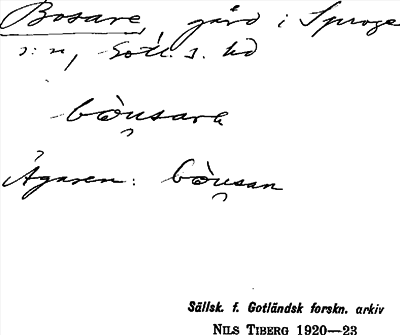 Bosarve, gård i Sproge
s:n, Gotl. s. hd
bòu̯sarvɛ
Ägaren: bòu̯san
Sällsk. f. Gotländsk forskn. arkiv
NILS TIBERG 1920—23